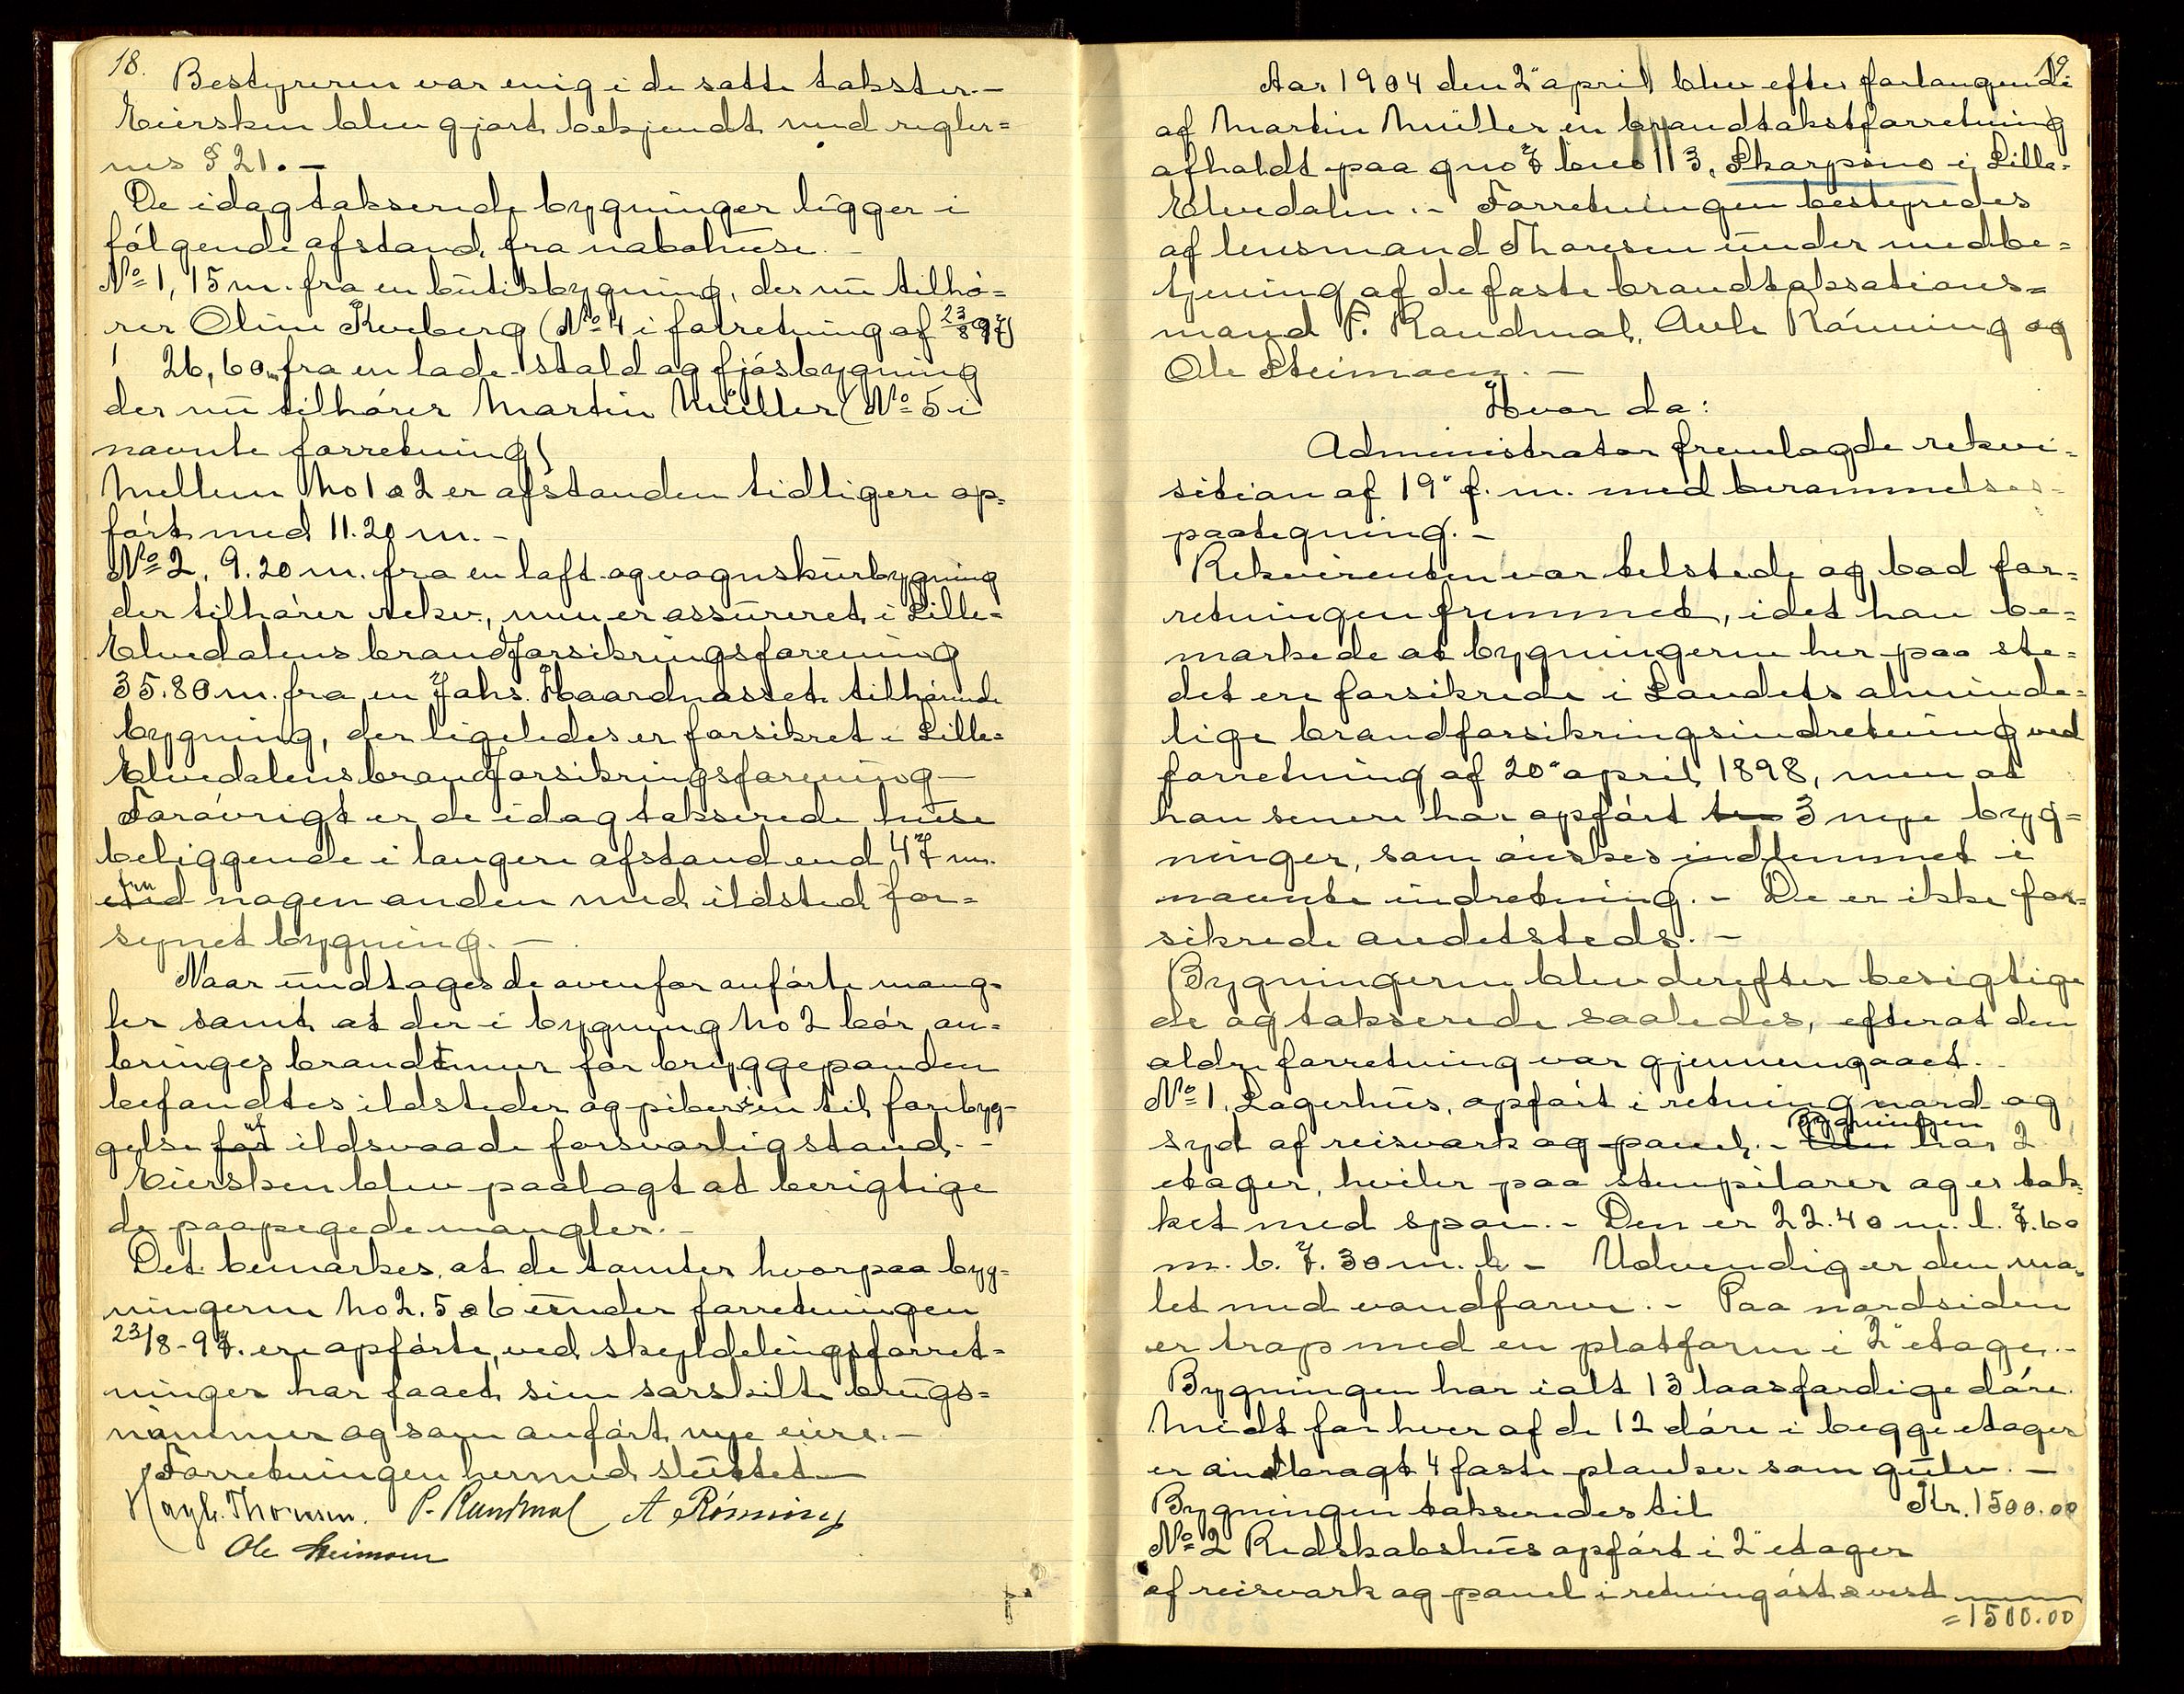 18.
Bestyreren var enig i de satte takster.-
Eiersken blev gjort bekjendt med regler=
nes § 21.-
De idag takserede bygninger ligger i
følgende afstand fra nabohuse.-
No 1, 15 m. fra en butikbygning, der nu tilhø=
rer Oline Kveberg (No 4 i forretning af 23/8 97)
26,60 m fra en lade- stald og fjøsbygning
der nu tilhører Martin Müller (No 5 i
nævnte forretning)
Mellem No 1 a 2 er afstanden tidligere op=
ført med 11.20 m.-
No 2, 9.20 m. fra en loft- og vognskurbygning
der tilhører rekv., men er assureret i Lille=
Elvedalens brandforsikringsforening
35.80 m. fra en Johs. Haardnæsset tilhørende
bygning, der ligeledes er forsikret i Lille=
Elvedalens brandforsikringsforening-
Forøvrigt er de idag takserede huse
beliggende i længere afstand end 47 m.
fra nogen anden med ildsted for=
synet bygning.-
Naar undtages de ovenfor anførte mang=
ler samt at der i bygning No 2 bør an=
bringes brandtmur for bryggepanden
befandtes ildsteder og piber i en til forebyg=
gelse af ildsvaade forsvarlig stand.-
Eiersken blev paalagt at berigtige
de paapegede mangler.-
Det bemærkes, at de tomter hvorpaa byg=
ningerne No 2. 5 a 6 under forretningen
23/8-97. ere opførte, ved skyldelingsforret=
ninger har faaet sine særskilte brugs=
nummer og som anført nye eiere.-
Forretningen hermed sluttet-
Hagb. Thoresen. P. Randmæl A Rønning
Ole Steimoen
19
Aar 1904 den 2" april blev efter forlangende
af Martin Müller en brandtakstforretning
afholdt paa gno 7 bno 113, Skarpsno i Lille=
Elvedalen.- Forretningen bestyredes
af lensmand Thoresen under medbe=
tjening af de faste brandtaksations=
mænd P. Randmæl, Avle Rønning og
Ole Steimoen.-
Hvor da:
Administrator fremlagde rekvi=
sition af 19" f. m. med berammelses=
paategning.-
Rekvirenten var tilstede og bad for=
retningen fremmet, idet han be=
mærkede at bygningerne her paa ste=
det ere forsikrede i Landets alminde=
lige brandforsikringsindretning ved
forretning af 20" april 1898, men at
han senere har opført tre 3 nye byg=
ninger, som ønskes indlemmet i
nævnte indretning.- De er ikke for=
sikrede andetsteds.-
Bygningerne blev derefter besigtige
de og takserede saaledes, efterat den
ældre forretning var gjennemgaaet.-
No 1. Lagerhus, opført i retning nord og
syd af reisværk og panel.- Bygningen har 2
etager, hviler paa stenpilarer og er tæk=
ket med spon.- Den er 22.40 m. l. 7.60
m. b. 7.30 m. h- Udvendig er den ma=
let med vandfarve.- Paa nordsiden
er trap med en platform i 2" etage.-
Bygningen har ialt 13 laasfærdige døre.
Midt for hver af de 12 døre i begge etager
er anbragt 4 faste planker som gulv.-
Bygningen takseredes til Kr. 1500.00
No 2 Redskabshus opført i 2" etager
af reisværk og panel i retning øst a vest
= 1500.00